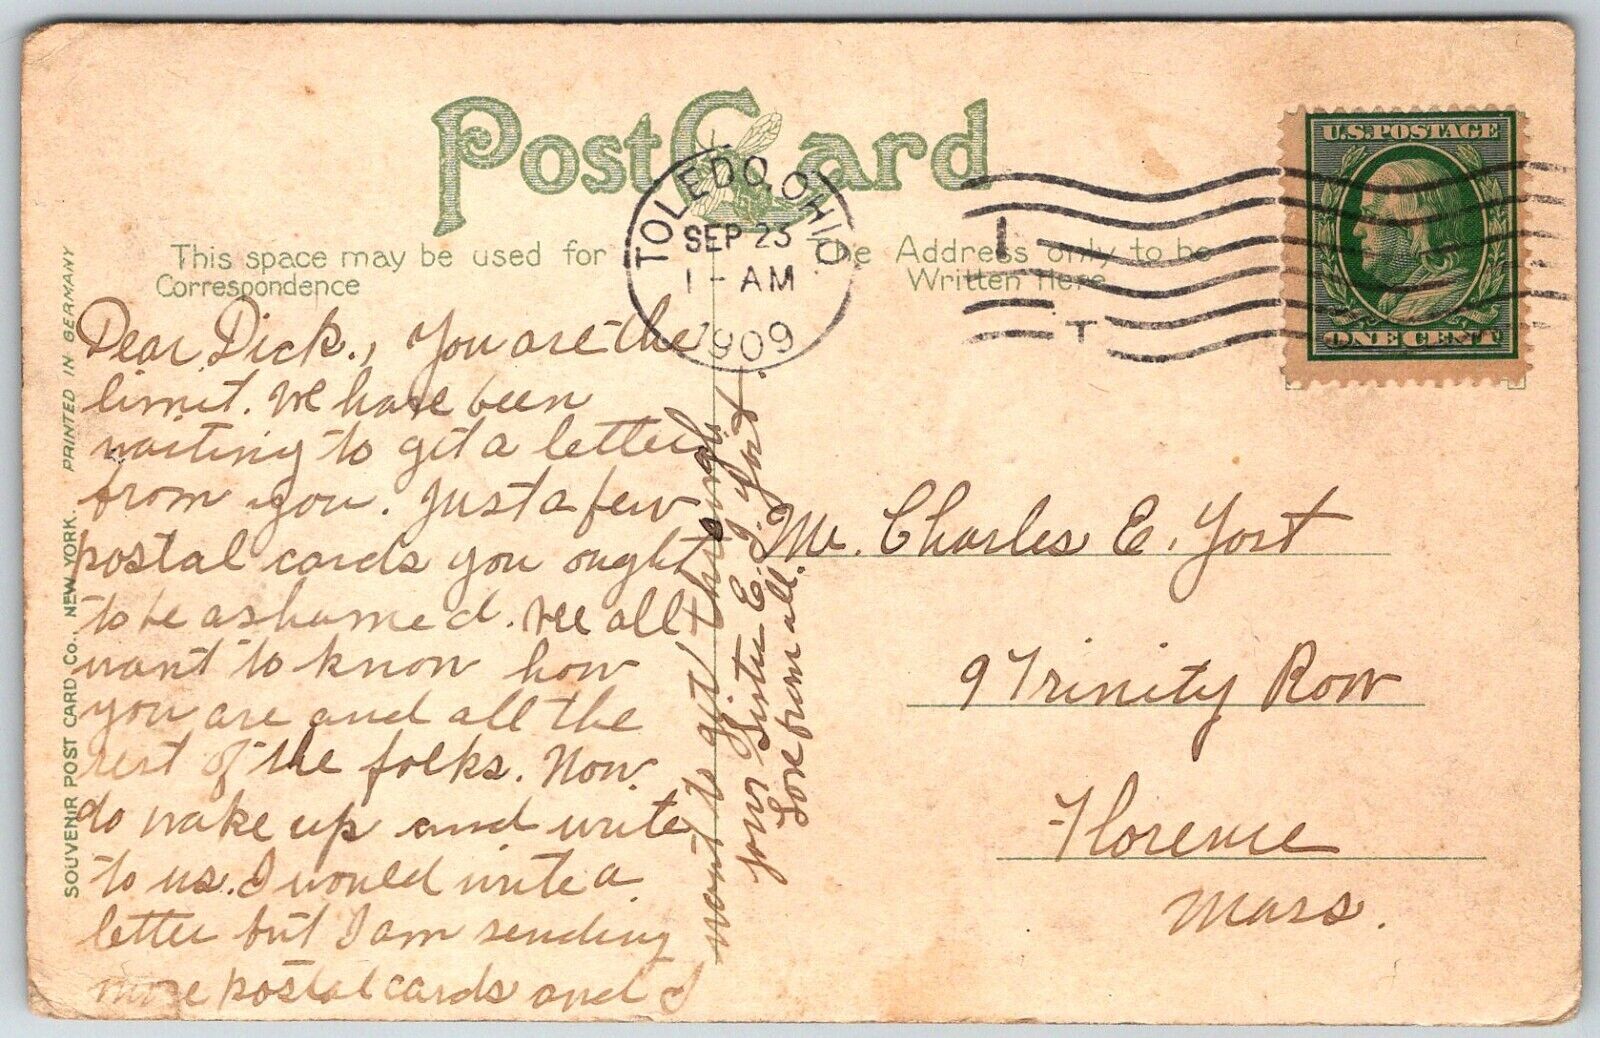 Post Card
TOLEDO, OHIO
SEP 23
1 - AM
1909
U.S. POSTAGE
ONE CENT
This space may be used for
Correspondence
The Address only to be
Written Here
SOUVENIR POST CARD CO., NEW YORK. PRINTED IN GERMANY
Dear Dick., You are the
limit. We have been
waiting to get a letter
from you. Just a few
postal cards you ought
to be ashamed. We all
want to know how
you are and all the
rest of the folks. Now
do wake up and write
to us. I would write a
letter but I am sending
more postal cards and I
want to get through
your Sister E. J. Yost.
Love from all.
Mr. Charles E. Yost
9 Trinity Row
Florence
Mass.